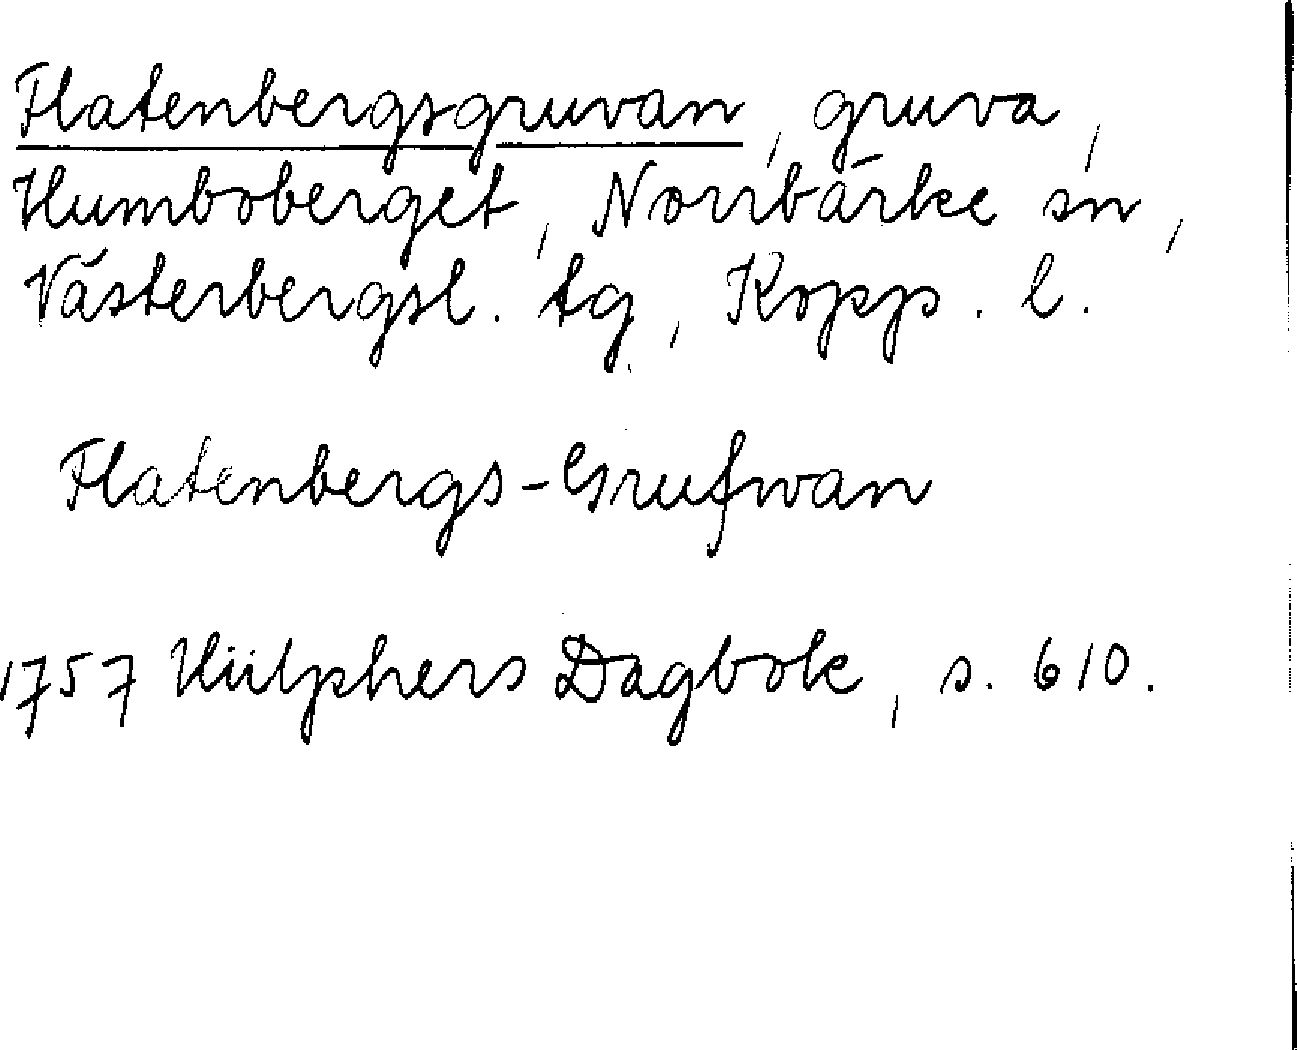 Flatenbergsgruvan, gruva,
Humboberget, Norrbärke sn,
Västerbergsl. tg, Kopp. l.
Flatenbergs-Grufwan
1757 Hülphers Dagbok, s. 610.